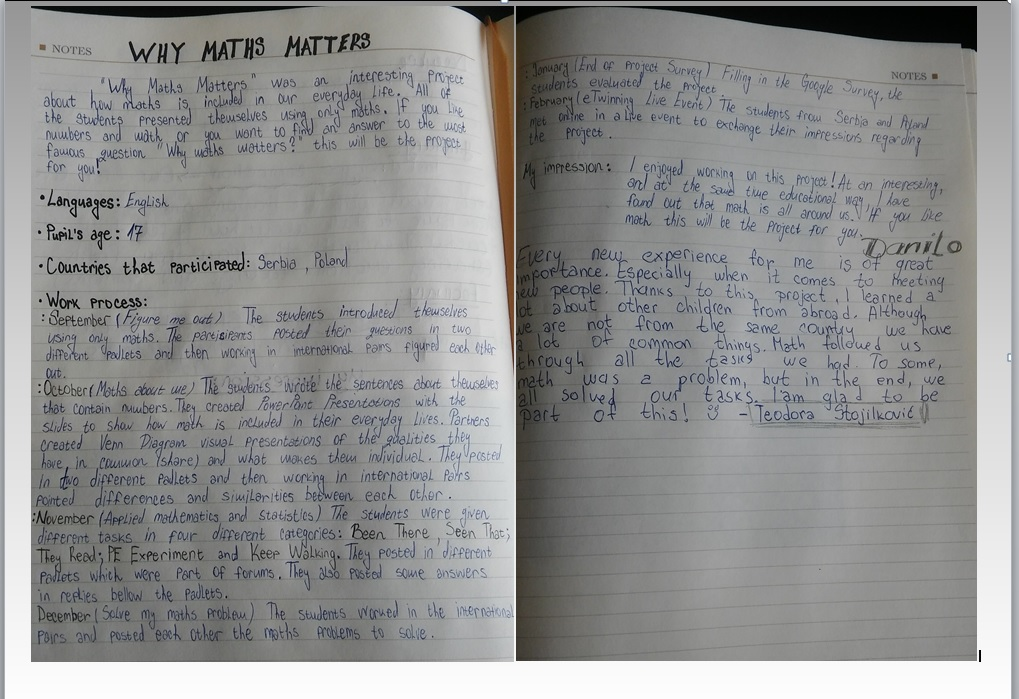 NOTES WHY MATHS MATTERS
"Why Maths Matters" was an interesting project
about how maths is included in our everyday life. All of
the students presented themselves using only maths. If you like
numbers and math, or you want to find an answer to the most
famous question "Why maths matters?" this will be the project
for you!
• Languages: English
• Pupil's age: 17
• Countries that participated: Serbia, Poland
• Work process:
: September (Figure me out) The students introduced themselves
using only maths. The participants posted their questions in two
different Padlets and then working in international pairs figured each other
out.
: October (Maths about me) The students wrote the sentences about themselves
that contain numbers. They created PowerPoint Presentations with the
slides to show how math is included in their everyday lives. Partners
created Venn Diagram visual presentations of the qualities they
have in common (share) and what makes them individual. They posted
in two different Padlets and then working in international pairs
pointed differences and similarities between each other.
: November (Applied mathematics and statistics) The students were given
different tasks in four different categories: Been There, Seen That;
They Read; PE Experiment and Keep Walking. They posted in different
Padlets which were part of forums. They also posted some answers
in replies bellow the Padlets.
December (Solve my maths problem) The students worked in the international
pairs and posted each other the maths problems to solve.
NOTES
: January (End of Project Survey) Filling in the Google Survey, the
students evaluated the project.
: February (eTwinning Live Event) The students from Serbia and Poland
met online in a live event to exchange their impressions regarding
the project.
My impression: I enjoyed working on this project! At an interesting,
and at the same time educational way, I have
found out that math is all around us. If you like
math this will be the project for you.
Danilo
Every new experience for me is of great
importance. Especially when it comes to meeting
new people. Thanks to this project, I learned a
lot about other children from abroad. Although
we are not from the same country we have
a lot of common things. Math followed us
through all the tasks we had. To some,
math was a problem, but in the end, we
all solved our tasks. I'am glad to be
part of this! - Teodora Stojilković